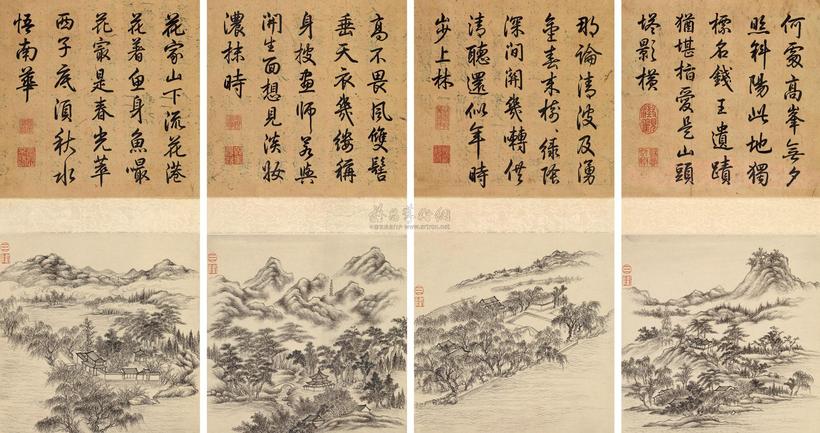 何處高峯無夕
照斜陽此地獨
標名錢王遺蹟
猶堪指愛是山頭
塔影橫
那論清波及湧
金春來樹樹綠陰
深間關幾囀供
清聽還似年時
步上林
高不畏風雙髻
垂天衣幾縷稱
身披畫師若與
開生面想見淡妝
濃抹時
花家山下流花港
花著魚身魚嘬
花最是春光萃
西子底須秋水
悟南華